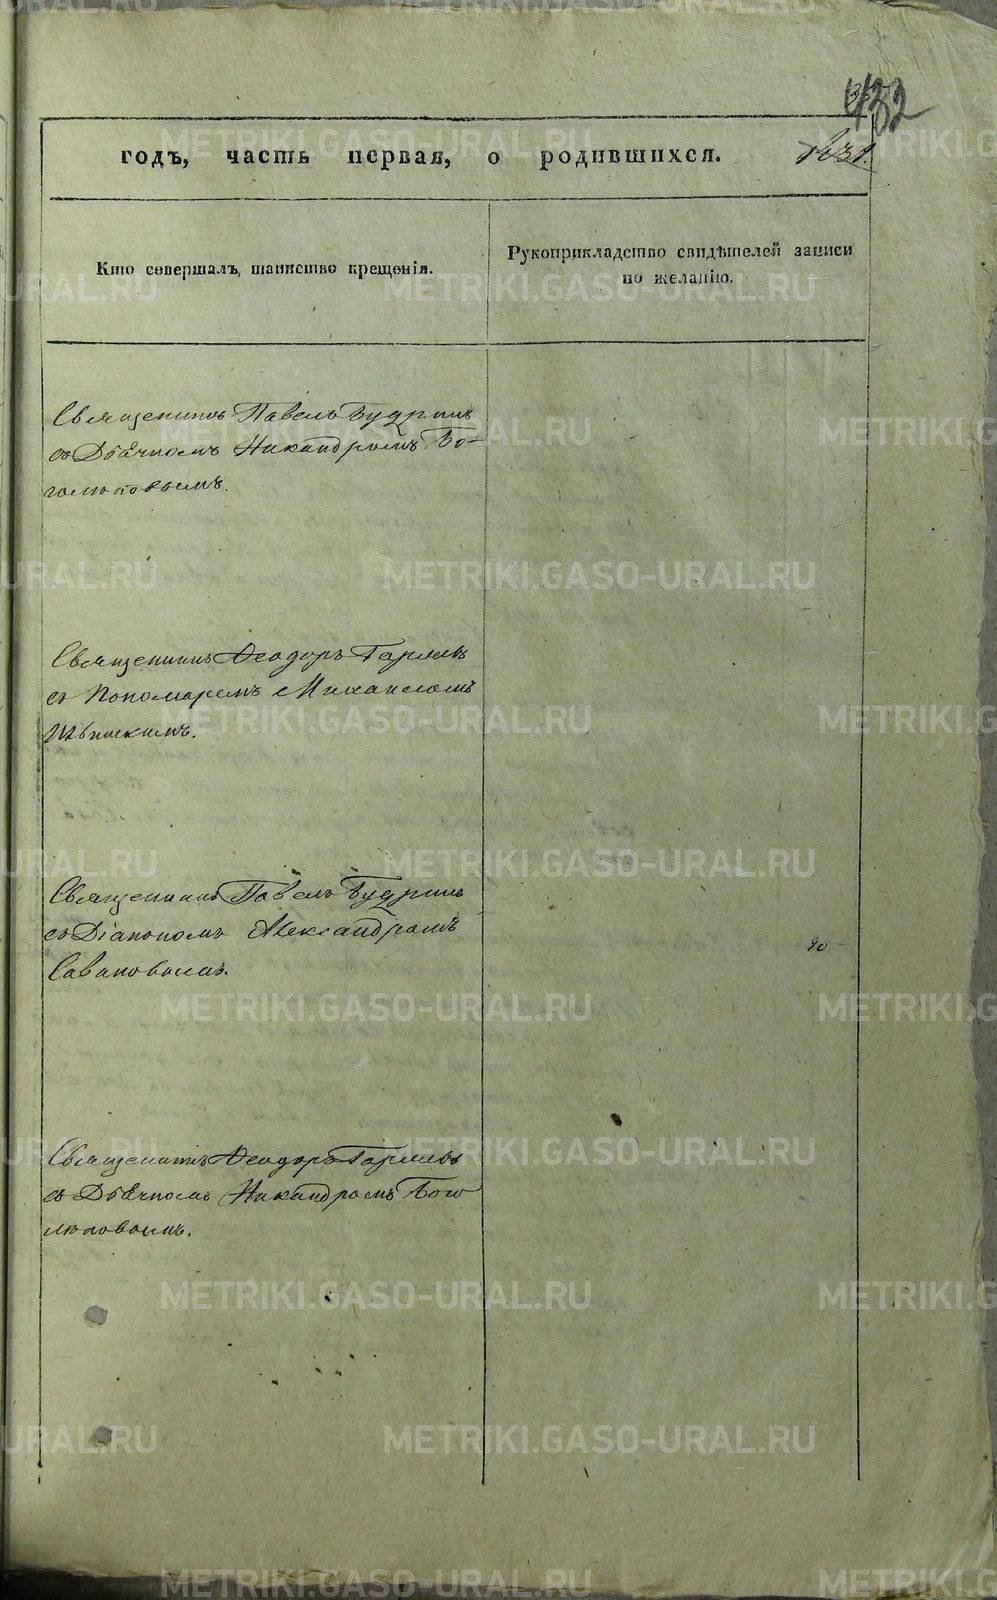 132
годъ, часть первая, о родившихся. 1031.
Кто совершалъ таинство крещенія.
Рукоприкладство свидѣтелей записи
по желанію.
Священникъ Павелъ Будринъ
съ Дьячкомъ Никандромъ Бо-
голюбовымъ.
Священникъ Ѳеодоръ Гаряевъ
съ Пономаремъ Михаиломъ
Священникъ Павелъ Будринъ
съ Діакономъ Александромъ
Священникъ Ѳеодоръ Гаряевъ
съ Дьячкомъ Никандромъ Бого
любовымъ.
METRIKI.GASO-URAL.RU